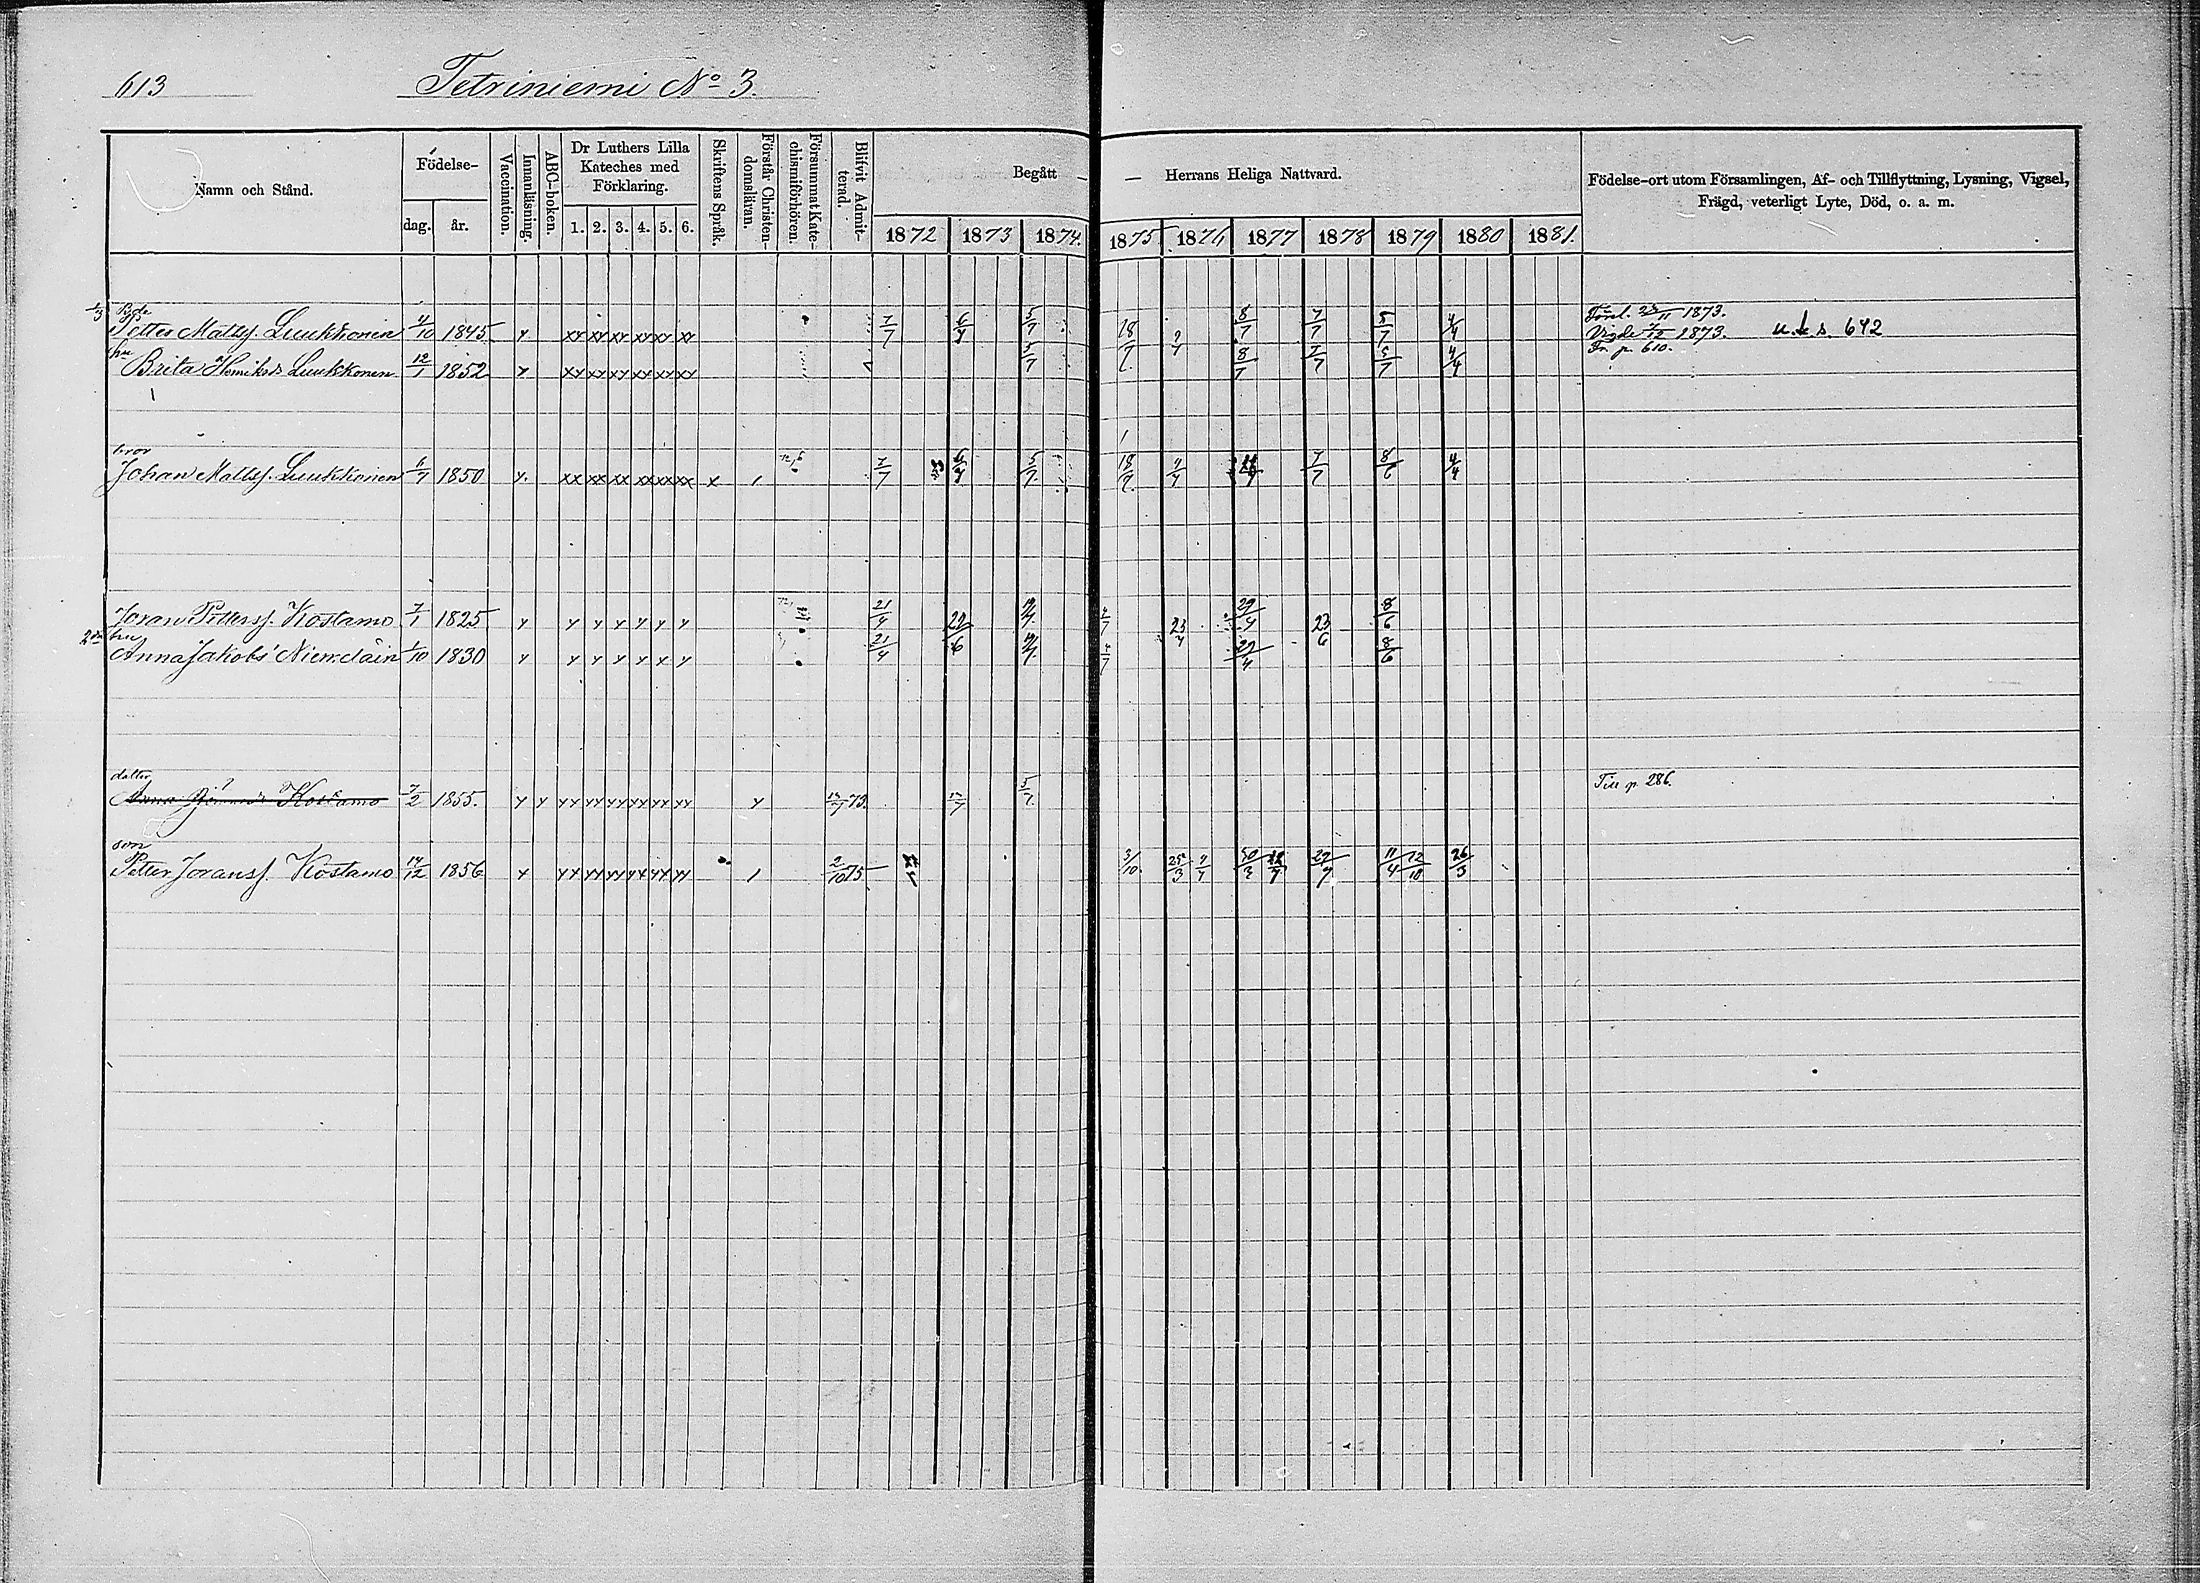 613 Tetriniemi No 3.
Namn och Stånd.
Födelse-
dag. år.
Vaccination.
Innanläsning.
ABC-boken.
Dr Luthers Lilla
Kateches med
Förklaring.
1. 2. 3. 4. 5. 6.
Skriftens Språk.
Förstår Christen-
domsläran.
Försummat Kate-
chismiförhören.
Blifvit Admit-
terad.
Begått — — Herrans Heliga Nattvard.
1872 1873 1874. 1875 1876 1877 1878 1879 1880 1881.
Födelse-ort utom Församlingen, Af- och Tillflyttning, Lysning, Vigsel,
Frägd, veterligt Lyte, Död, o. a. m.
Petter Matts. Luukkonen 4/10 1845 x xx xx xx xx xx xx 7/7 6/7 5/7 18/7 8/7 7/7 8/7 4/4 1873.
1873. u.k.s. 642
Fr. p. 610.
hu
Brita Henriksdr Luukkonen 12/1 1852 x xx xx xx xx xx xx 5/7 8/7 7/7 4/4
bror
Johan Matts. Luukkonen 6/7 1850 x. xx xx xx xx xx xx x / 7/7 6/7 5/7 18/7 7/7 8/6 4/4
Joran Petterss. Kostamo 7/1 1825 x x x x x x x 21/4 22/6 23/7 29/4 23/6 8/6
hu
Anna Jakobs 1/10 1830 x x x x x x x 21/4 29/4 8/6
dotter
Anna Kostamo 7/2 1855. x x xx xx xx xx xx xx x 73. 5/7 Till p. 286.
son
Petter Joranss. Kostamo 14/12 1856 x xx xx xx xx xx xx / 2/10 75 3/10. 25/3 30/3 29/7 11/4 12/10 26/3